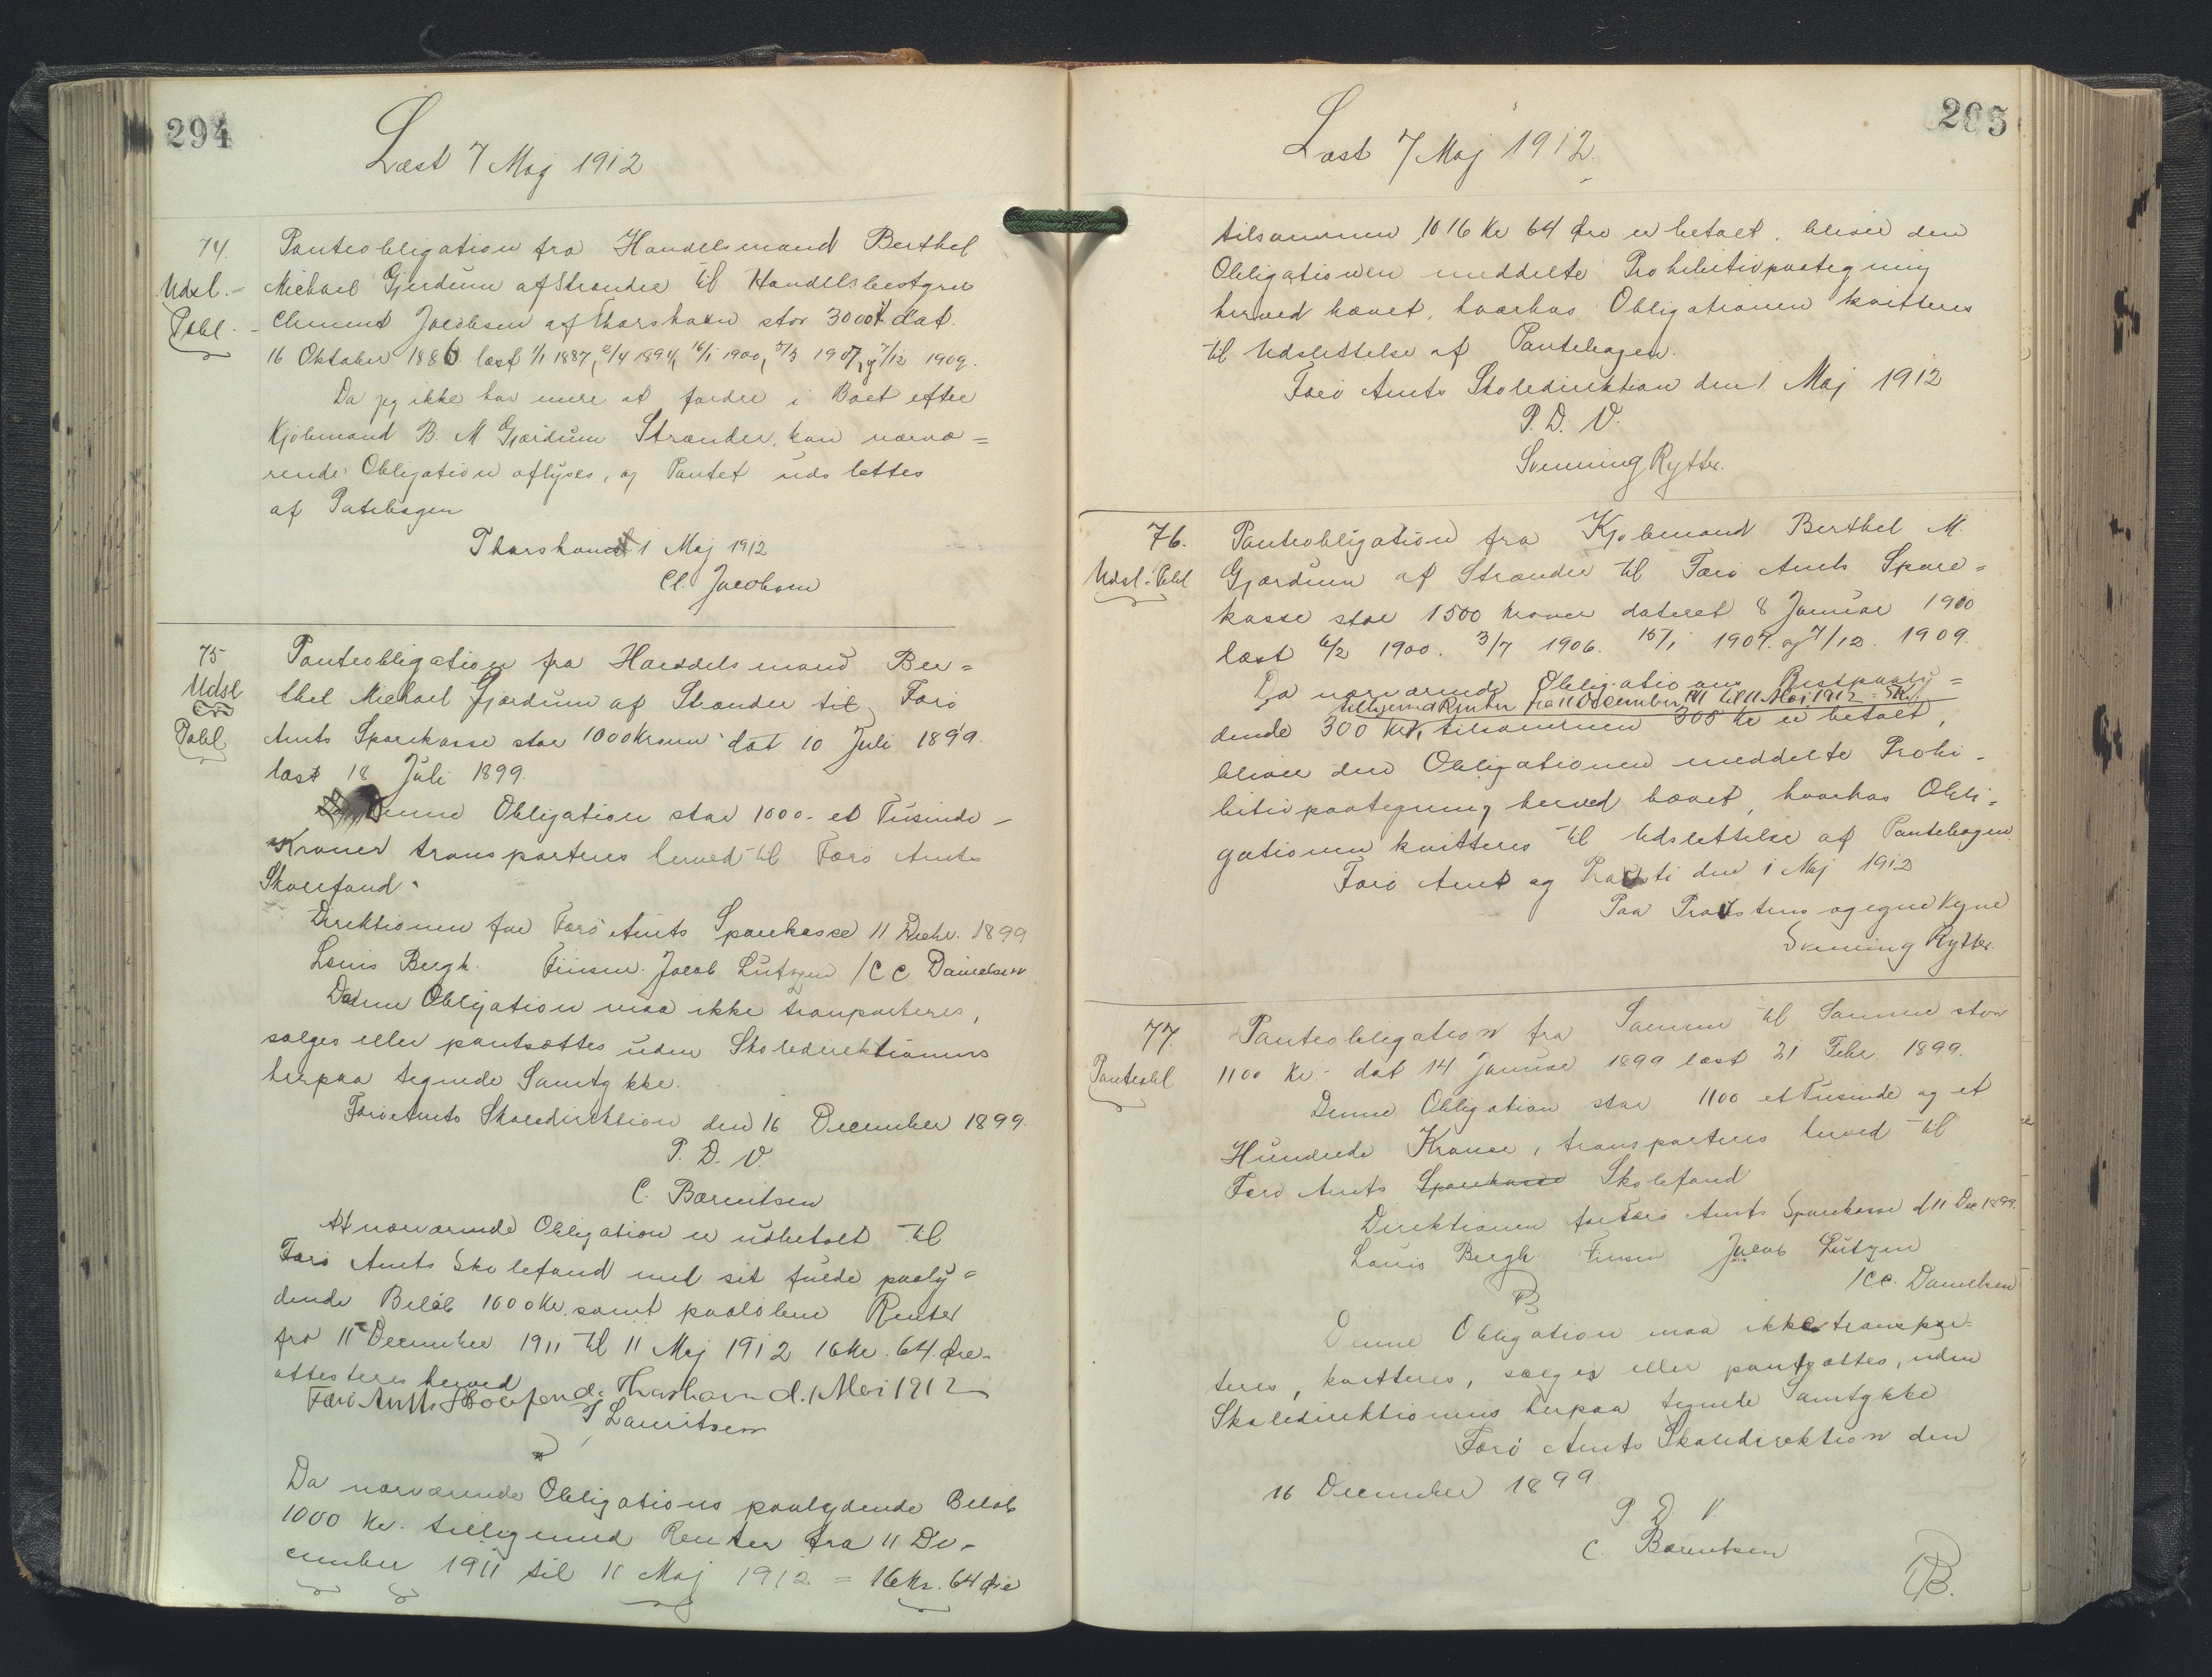 294
Læst 7 Maj 1912
74.
Udsl. -
Pobl. -
Panteobligation fra Handelsmand Berthel
Michael Gjerdum af Strander til Handelsbestyrer
Clement Jacobsen af Thorshavn stor 3000 K dat.
16 Oktober 1886 læst 1/1 1887, 16/1 1900, 7/12 1909.
Da jeg ikke har mere at fordre i Boet efter
Kjöbmand B. M Gjærdum Strænder, kan nærvæ=
rende Obligation aflyses, og Pantet udslettes
af Patebogen
Thorshavn d 1 Maj 1912
Cl. Jacobsen
75
Udsl
Pobl
Panteobligation fra Handelsmand Ber=
thel Michael Gjærdum af Strænder til Færö
Amts Sparekasse stor 1000 Kroner dat 10 Juli 1899.
læst 18 Juli 1899.
Denne Obligation stor 1000 - et Tusinde -
Kroner transporteres herved til Færö Amts
Skolefond.
Direktionen for Færö Amts Sparekasse 11 Decbr. 1899
Louis Bergh. Finsen. Jacob Lützen / C C Danielsen
Denne Obligation maa ikke tranporteres,
sælges eller pantsættes uden Skoledirektionens
herpaa tegnede Samtykke.
Færö Amts Skoledirektion den 16 December 1899.
P. D. V.
C. Bærentsen
At nærværende Obligation er udbetalt til
Færö Amts Skolefond med sit fulde paaly=
dende Belöb 1000 Kr. samt paalöbne Renter
fra 11 December 1911 til 11 Maj 1912 16 Kr. 64 Øre
attesteres herved
Færö Amts Skolefond. Thorshavn d. 1 Mai 1912
Lauritsen
Da nærværende Obligations paalydende Belöb
1000 Kr. tilligemed Renter fra 11 De-
cember 1911 til 11 Maj 1912 = 16 Kr. 64 Øre
295
Læst 7 Maj 1912.
tilsammen 1016 Kr 64 Øre er betalt, bliver den
Obligationen meddelte Prohibitivpaategning
herved hævet, hvorhos Obligationen kvitteres
til Udslettelse af Pantebogen.
Færö Amts Skoledirektion den 1 Maj 1912
P. D. V.
Svenning Rytter.
76.
Udsl. Pobl
Panteobligation fra Kjöbmand Berthel M.
Gjærdum af Strænder til Færö Amts Spare=
kasse stor 1500 Kroner dateret 8 Januar 1900
læst 6/2 1900. 3/7 1906. 15/1 1907. og 7/12. 1909.
Da nærværende Obligations Restpaaly=
tilligemed Renter fra 11 December 1911 til 11 Maj 1912 = 5 Kr.
dende 300 Kr, tilsammen 305 Kr er betalt,
bliver den Obligationen meddelte Prohi-
bitivpaategning herved hævet, hvorhos Obli=
gationen kvitteres til Udslettelse af Pantebogen.
Færö Amt og Provsti den 1 Maj 1912
Paa Provstens og egne Vegne
Svenning Rytter.
77.
Panteobl
Panteobligation fra Samme til Samme stor
1100 Kr. - dat 14 Januar 1899 læst 21 Febr. 1899.
Denne Obligation stor 1100 et Tusinde og et
Hundrede Kroner, transporteres herved til
Færö Amts Sparekasse Skolefond
Direktionen for Færö Amts Sparekasse d 11 Dec 1899.
Louis Bergh Finsen Jacob Lützen
/ C C. Danielsen
Denne Obligation maa ikke transpor=
teres, kvitteres, sælges eller pantsættes, uden
Skoledirektionens herpaa tegnede Samtykke
Færö Amts Skoledirektion den
16 December 1899.
P. D. V.
C. Bærentsen